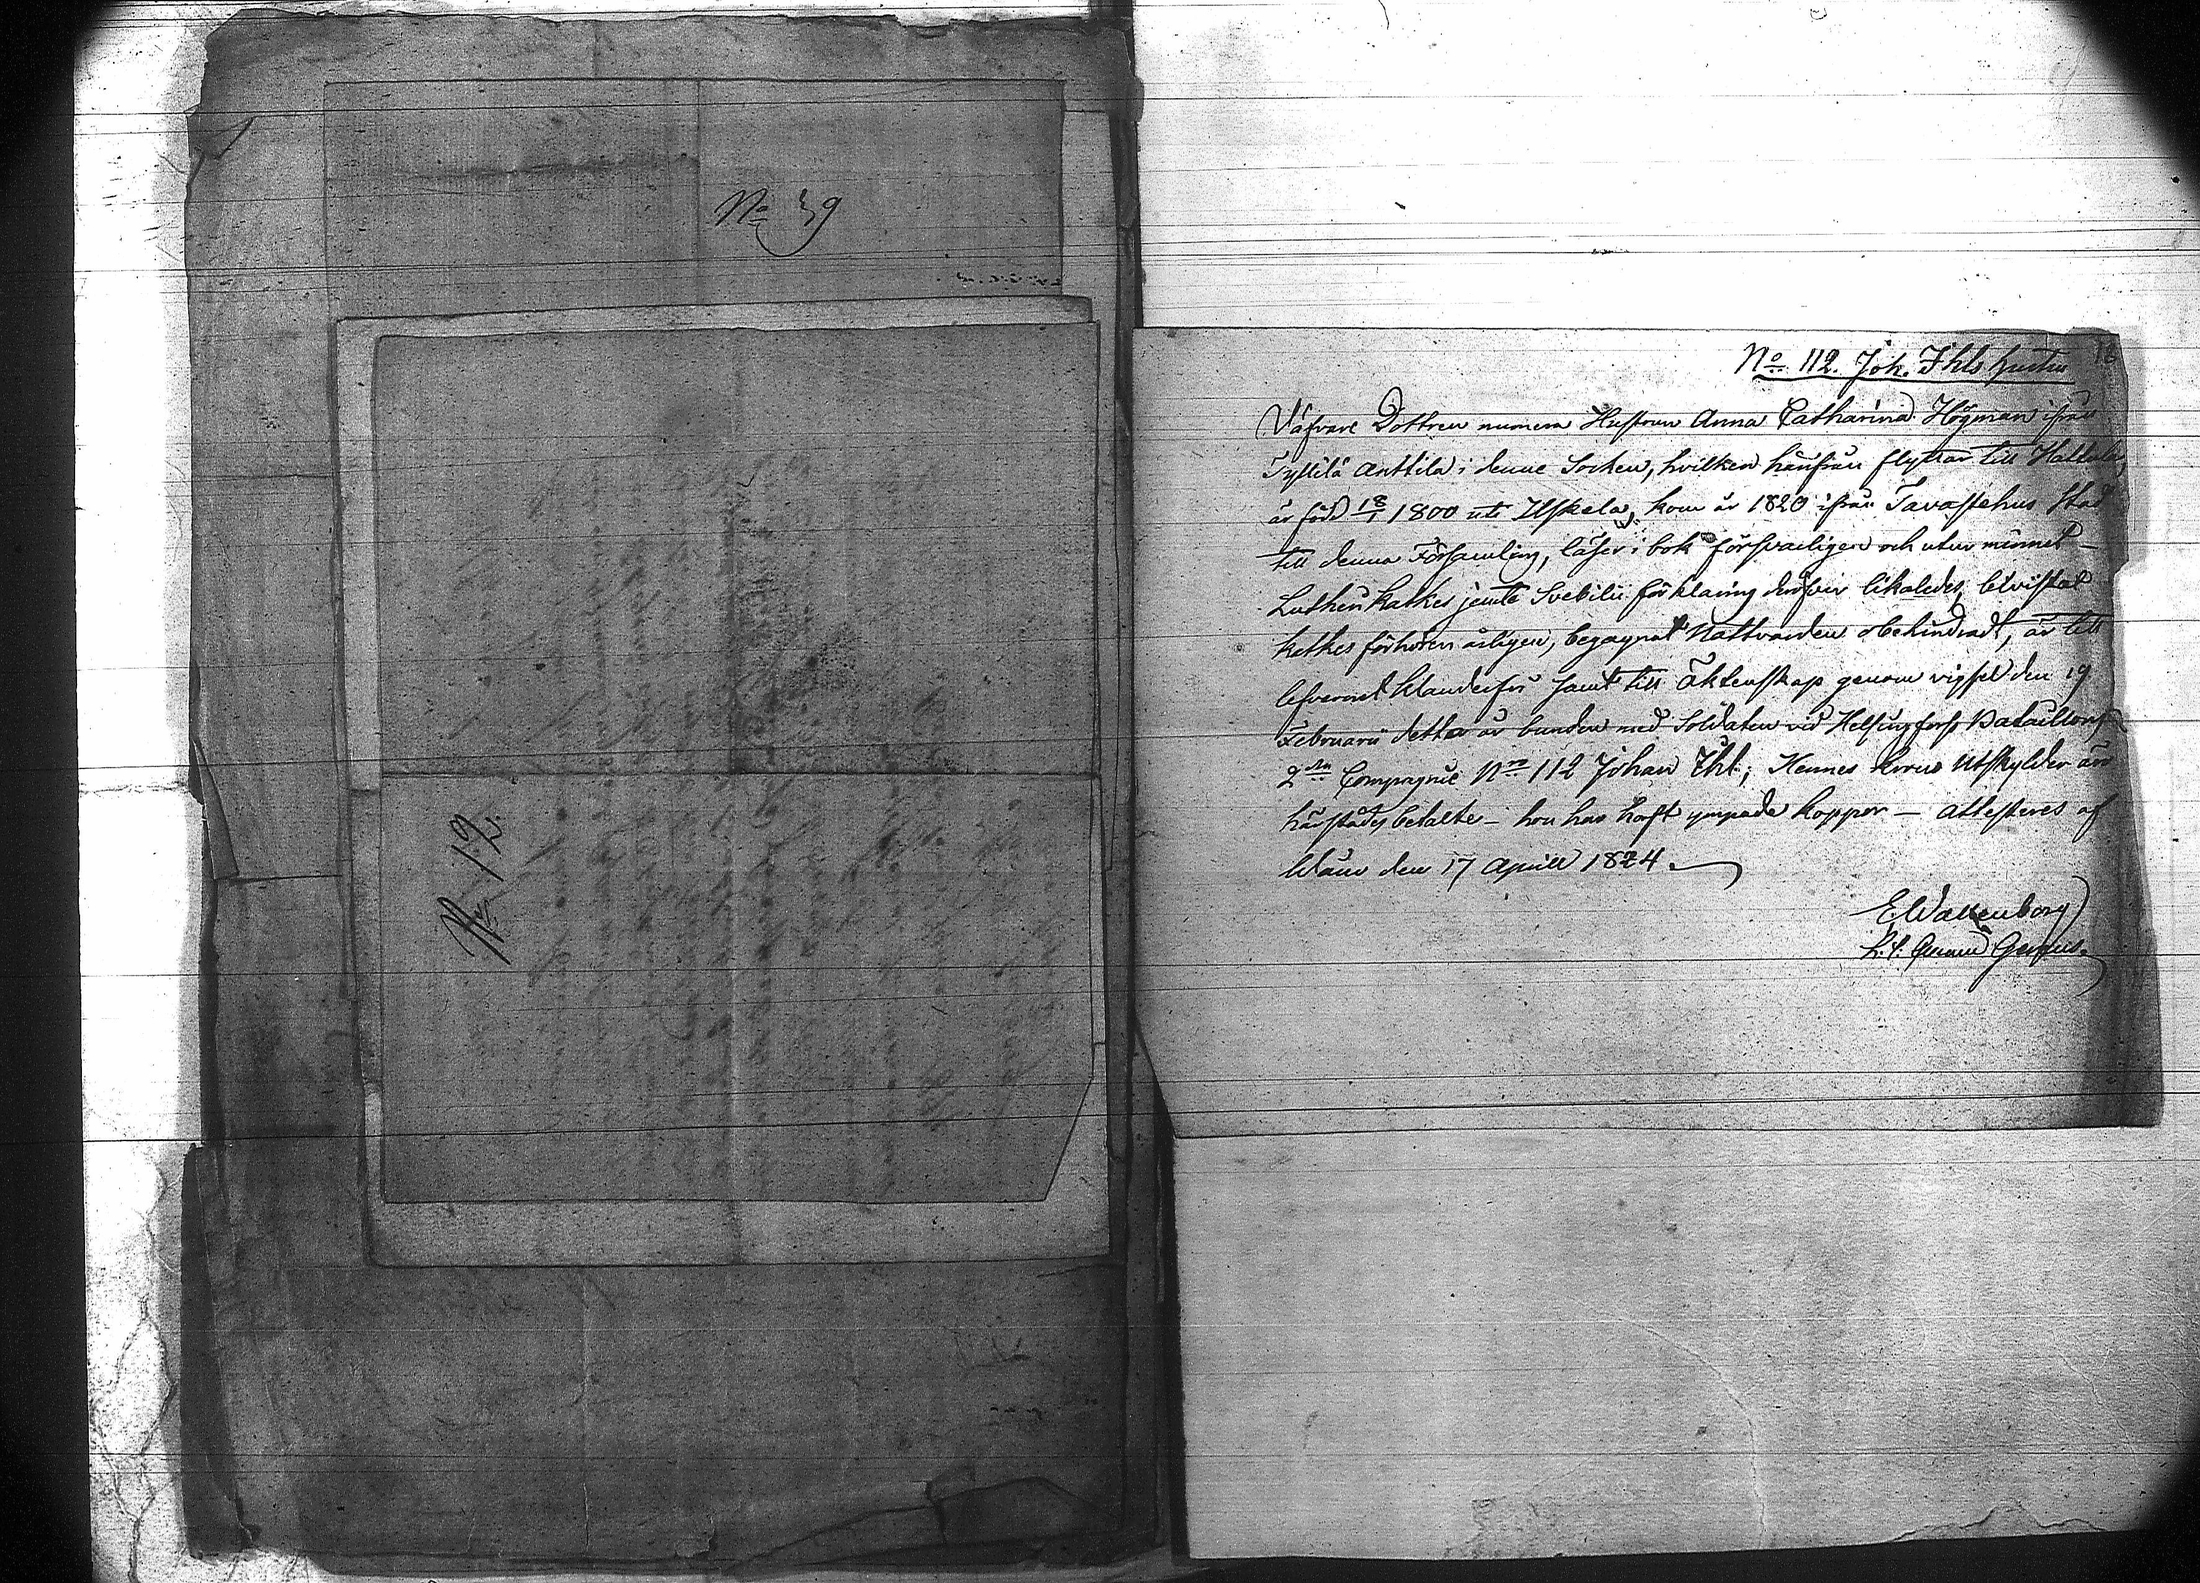 No 39
No 12.
No 112. Joh. Ihls hustru 16
Väfvare Dottren numera Hustrun Anna Catharina Högman ifrån
Anttila i denne Socken, hvilken härifrån flyttar till Hattula,
är född 18/1 1800 uti Uskela, kom år 1820 ifrån Tavastehus Stad
till denna Församling, läser i bok försvarligen och utur minnet
Lutheri katkes jemte Svebilii förklaring deröfver likaledes, bevistat
katkes förhören årligen, begagnat Nattvarden obehindradt, är till
lefvernet klanderfri samt till Äktenskap genom vigsel den 19
Februarii detta år bunden med Soldaten vid Helsingfors Bataillons
2dra Compagnie No 112 Johan Ihl; Hennes krono Utskylder äro
härstädes betalte – hon har haft ympade koppor – attesteres af
den 17 Aprill 1824.
E. Wallenborg